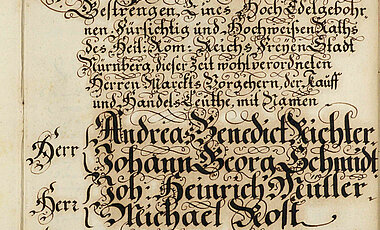 Gestrengen, Eines Hoch Edelgebohr-
nen Fürsichtig und Hochweisen Raths
des Heil: Röm: Reichs Freyen Stadt
Nürnberg, dieser Zeit wohlverordneten
Herren Marckts Vorgehern, der Kauff
und Handels Leuthe, mit Namen
Andreas Benedict Richter.
Herr Johann Georg Schmidt
Joh: Heinrich Müller
Herr Michael Rost